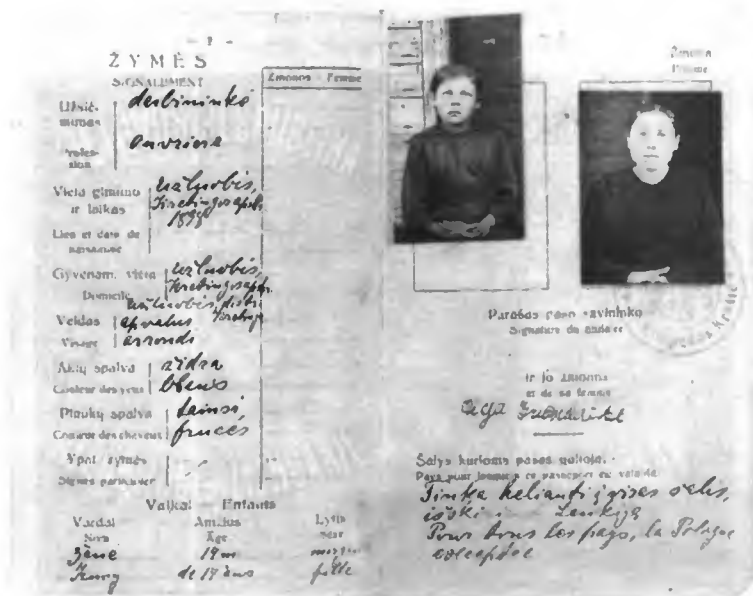 ŽYMĖS
SIGNALEMENT
Žmonos - Femme
Užsiė-
mimas
darbininkė
Profes-
sion
Ouvriere
Vieta gimimo
ir laikas
Užluobis,
Kretingos apskr.
Lieu et date de
naissance
Gyvenam. vieta
Užluobis,
Kretingos apskr.
Domicile
Užluobis, distr.
Veidas
apvalus
Visage
arrondi
Akių spalva
žydra
Couleur des yeux
bleus
Plaukų spalva
tamsi
Couleur des cheveux
Ypat. žymės
Signes particulier
Vaikai Enfants
Vardai Amžius Lytis
Nom Âge Sexe
19 m
de 19 ans fille
Žmonos
Femme
Parašas paso savininko
Signature du titulaire
ir jo žmonos
et de sa femme
Šalys kurioms pasas galioja.
Pays pour lesquels ce passeport est valable
Tinka keliauti į visas šalis,
išskiriant Lenkiją
Pour tous les pays, la Pologne
exceptée